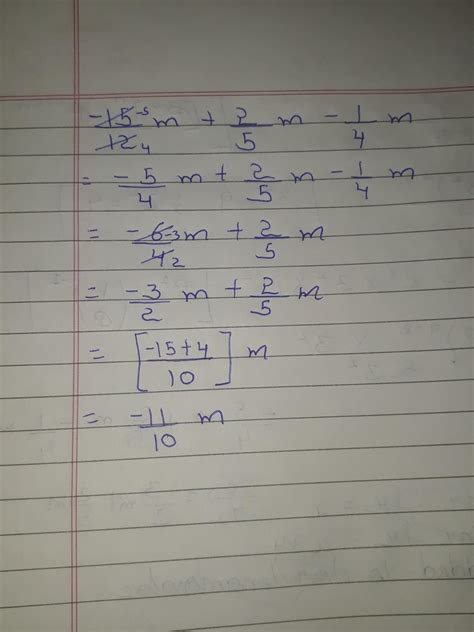 -15-5/12 4 m + 2/5 m - 1/4 m
= -5/4 m + 2/5 m - 1/4 m
= -6-3/4 2 m + 2/5 m
= -3/2 m + 2/5 m
= [-15+4/10] m
= -11/10 m